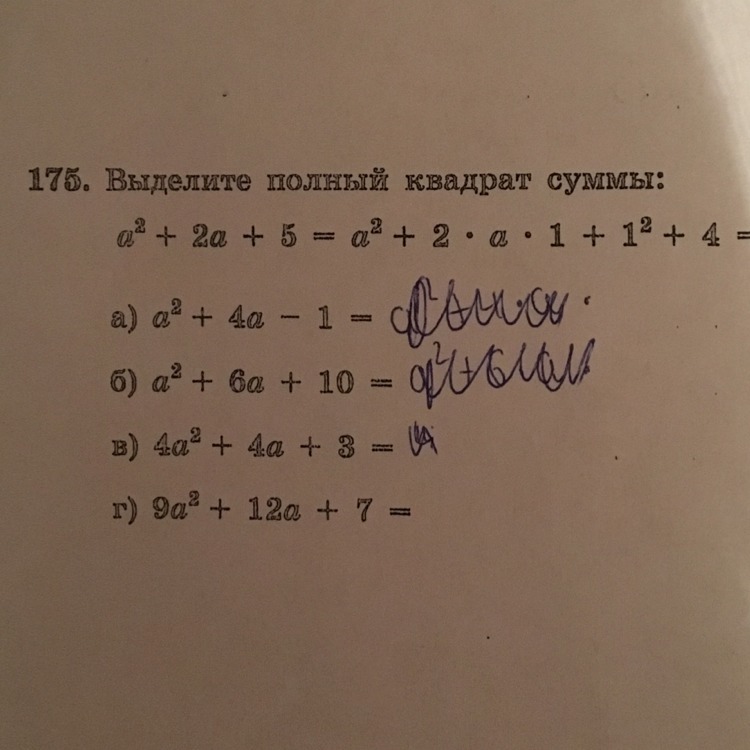 175. Выделите полный квадрат суммы:
a² + 2a + 5 = a² + 2 · a · 1 + 1² + 4 =
а) a² + 4a − 1 =
б) a² + 6a + 10 =
в) 4a² + 4a + 3 =
г) 9a² + 12a + 7 =